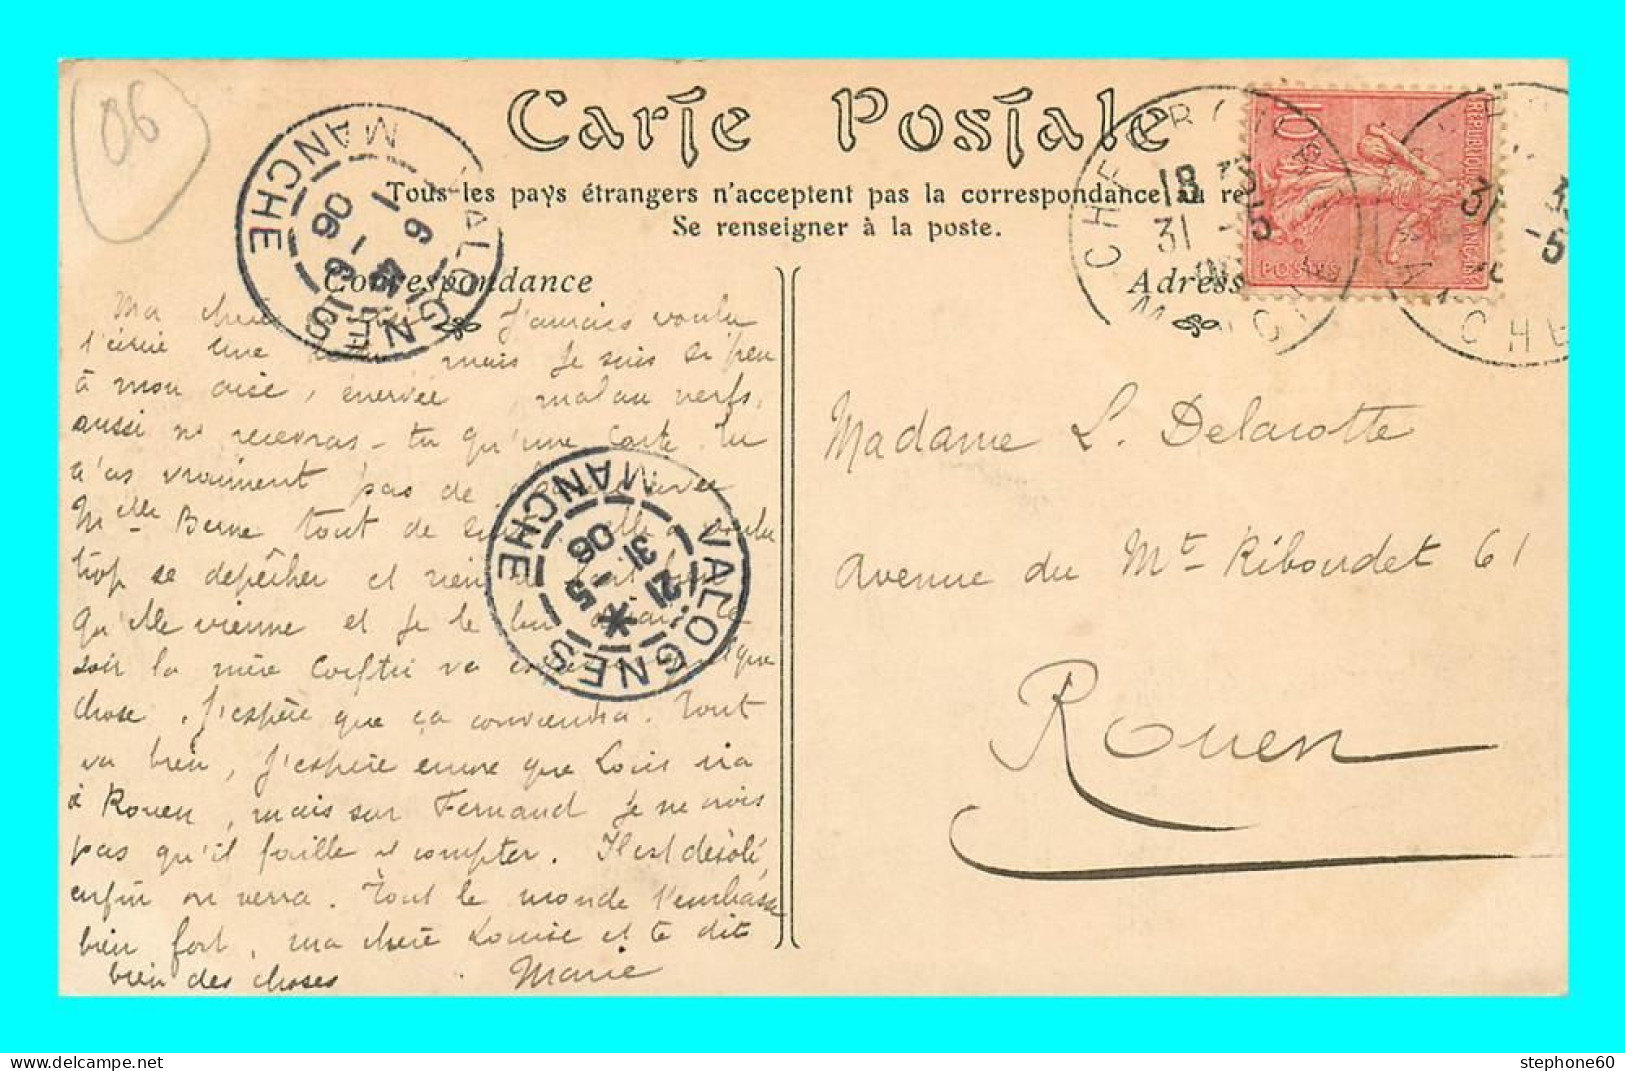 06
Carte Postale
Tous les pays étrangers n'acceptent pas la correspondance au re
Se renseigner à la poste.
Correspondance
Adress
10
REPUBLIQUE FRANÇAISE
POSTES
CHERBOURG
18
31 -5
MANCHE
31 -5
MANCHE
VALOGNES
MANCHE
1 6
06
VALOGNES
MANCHE
21
31 -5
06
Ma chère J'aurais voulu
t'écrire une mais je suis si peu
à mon aise, énervée mal au nerfs,
aussi ne recevras-tu qu'une carte. Tu
n'as vraiment pas de
Melle Berne tout de suite elle a voulu
trop se dépêcher et rien
qu'elle vienne et je le
soir la mère va quelque
chose. J'espère que ça conviendra. Tout
va bien, J'espère encore que Louis ira
à Rouen, mais sur Fernand je ne crois
pas qu'il faille y compter. Il est désolé
enfin on verra. Tout le monde t'embrasse
bien fort, ma chère Louise et te dit
bien des choses. Marie
Madame L. Delarotte
Avenue du Mt Riboudet 61
Rouen
delcampe.net
stephone60